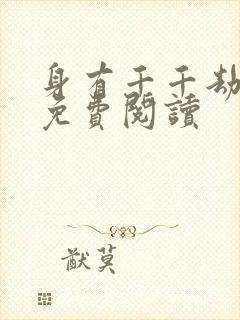 身有千千劫
免費閱讀
猷莫